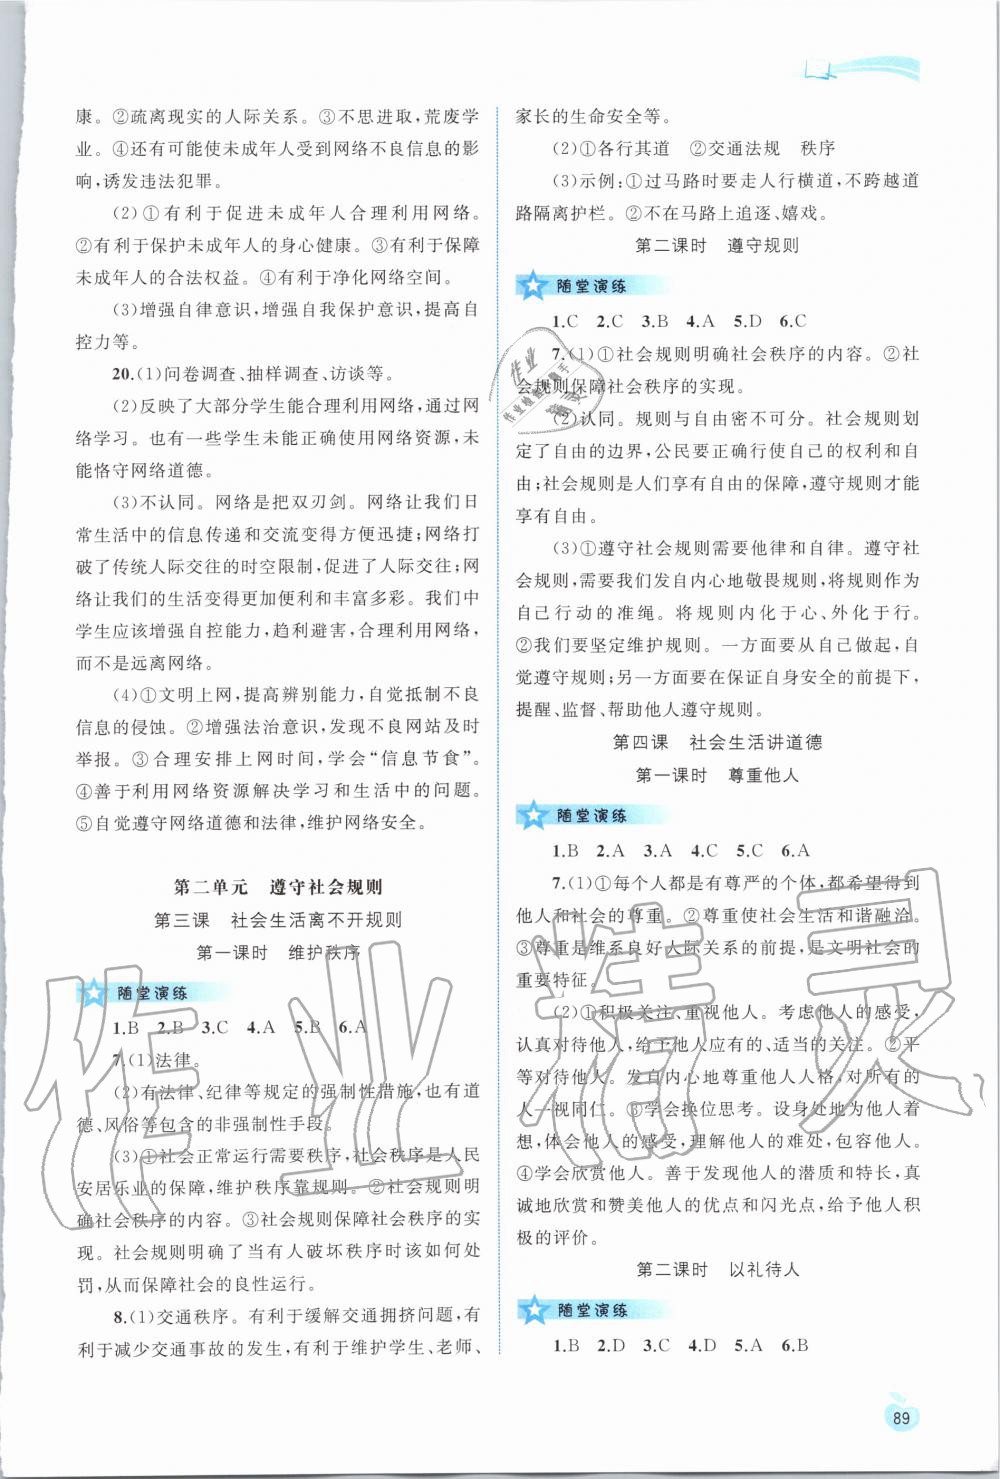 康。②疏离现实的人际关系。③不思进取,荒废学
业。④还有可能使未成年人受到网络不良信息的影
响,诱发违法犯罪。
(2)①有利于促进未成年人合理利用网络。
②有利于保护未成年人的身心健康。③有利于保障
未成年人的合法权益。④有利于净化网络空间。
(3)增强自律意识,增强自我保护意识,提高自
控力等。
20.(1)问卷调查、抽样调查、访谈等。
(2)反映了大部分学生能合理利用网络,通过网
络学习。也有一些学生未能正确使用网络资源,未
能恪守网络道德。
(3)不认同。网络是把双刃剑。网络让我们日
常生活中的信息传递和交流变得方便迅捷;网络打
破了传统人际交往的时空限制,促进了人际交往;网
络让我们的生活变得更加便利和丰富多彩。我们中
学生应该增强自控能力,趋利避害,合理利用网络,
而不是远离网络。
(4)①文明上网,提高辨别能力,自觉抵制不良
信息的侵蚀。②增强法治意识,发现不良网站及时
举报。③合理安排上网时间,学会“信息节食”。
④善于利用网络资源解决学习和生活中的问题。
⑤自觉遵守网络道德和法律,维护网络安全。
第二单元 遵守社会规则
第三课 社会生活离不开规则
第一课时 维护秩序
随堂演练
1.B 2.B 3.C 4.A 5.B 6.A
7.(1)法律。
(2)有法律、纪律等规定的强制性措施,也有道
德、风俗等包含的非强制性手段。
(3)①社会正常运行需要秩序,社会秩序是人民
安居乐业的保障,维护秩序靠规则。②社会规则明
确社会秩序的内容。③社会规则保障社会秩序的实
现。社会规则明确了当有人破坏秩序时该如何处
罚,从而保障社会的良性运行。
8.(1)交通秩序。有利于缓解交通拥挤问题,有
利于减少交通事故的发生,有利于维护学生、老师、
家长的生命安全等。
(2)①各行其道 ②交通法规 秩序
(3)示例:①过马路时要走人行横道,不跨越道
路隔离护栏。②不在马路上追逐、嬉戏。
第二课时 遵守规则
随堂演练
1.C 2.C 3.B 4.A 5.D 6.C
7.(1)①社会规则明确社会秩序的内容。②社
会规则保障社会秩序的实现。
(2)认同。规则与自由密不可分。社会规则划
定了自由的边界,公民要正确行使自己的权利和自
由;社会规则是人们享有自由的保障,遵守规则才能
享有自由。
(3)①遵守社会规则需要他律和自律。遵守社
会规则,需要我们发自内心地敬畏规则,将规则作为
自己行动的准绳。将规则内化于心、外化于行。
②我们要坚定维护规则。一方面要从自己做起,自
觉遵守规则;另一方面要在保证自身安全的前提下,
提醒、监督、帮助他人遵守规则。
第四课 社会生活讲道德
第一课时 尊重他人
随堂演练
1.B 2.A 3.A 4.C 5.C 6.A
7.(1)①每个人都是有尊严的个体,都希望得到
他人和社会的尊重。②尊重使社会生活和谐融洽。
③尊重是维系良好人际关系的前提,是文明社会的
重要特征。
(2)①积极关注、重视他人。考虑他人的感受,
认真对待他人,给予他人应有的、适当的关注。②平
等对待他人。发自内心地尊重他人人格,对所有的
人一视同仁。③学会换位思考。设身处地为他人着
想,体会他人的感受,理解他人的难处,包容他人。
④学会欣赏他人。善于发现他人的潜质和特长,真
诚地欣赏和赞美他人的优点和闪光点,给予他人积
极的评价。
第二课时 以礼待人
随堂演练
1.B 2.D 3.C 4.D 5.A 6.B
89
作业精灵